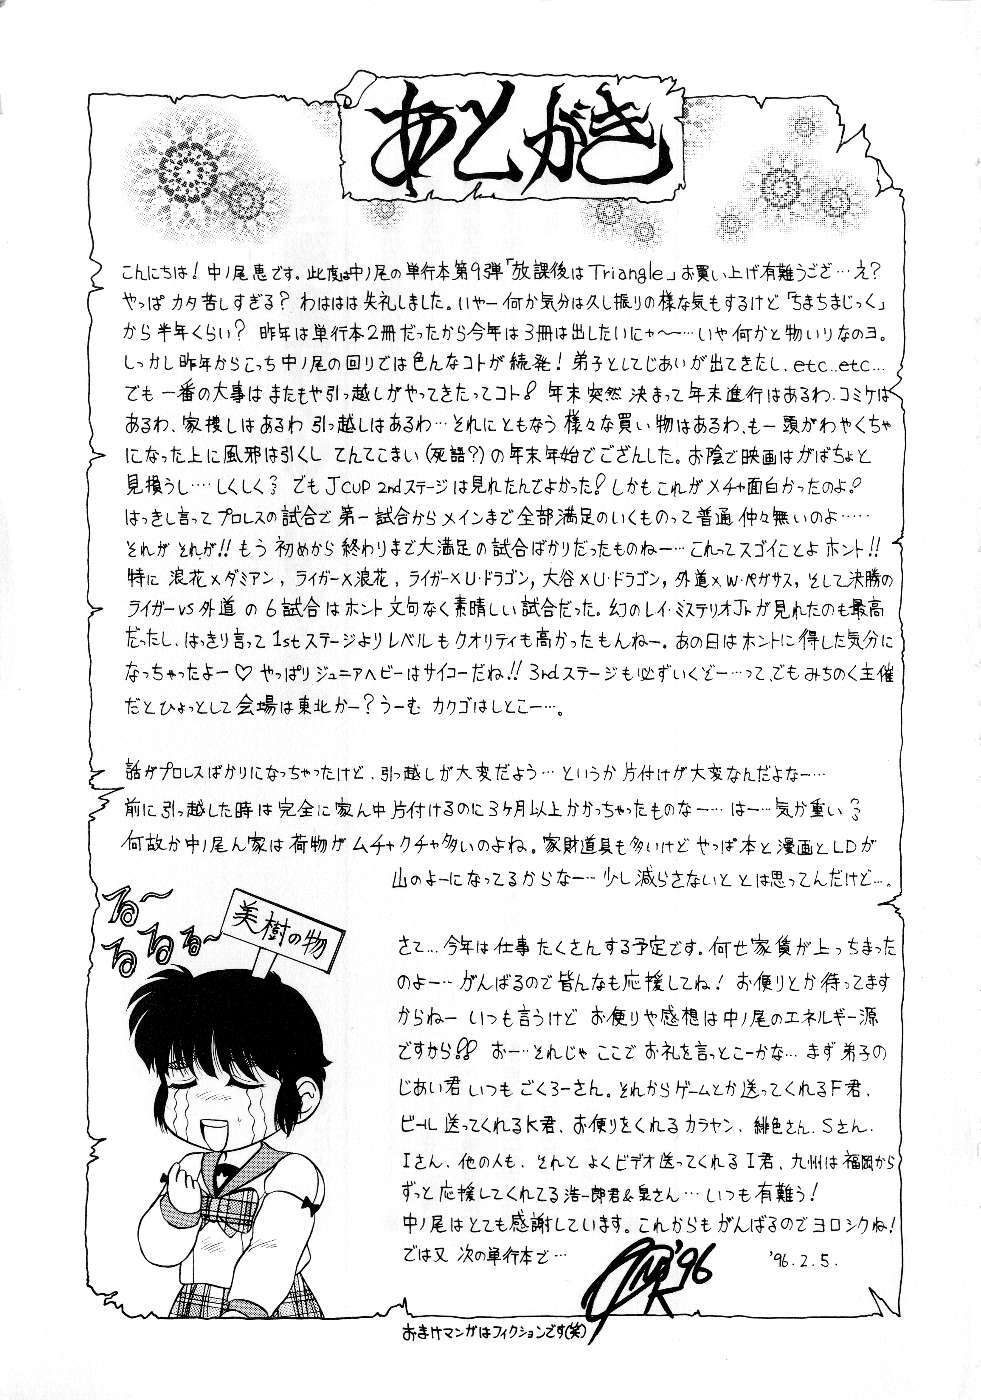 あとがき
こんにちは！中ノ尾恵です。此度は中ノ尾の単行本第9弾「放課後はTriangle」お買い上げ有難うござ…え？
やっぱ カタ苦しすぎる？ わははは失礼しました。いやー何か気分は久し振りの様な気もするけど「ちまちまじっく」
から半年くらい？ 昨年は単行本2冊だったから今年は3冊は出したいにゃ〜〜…いや何かと物いりなのヨ。
しっかし昨年からこっち中ノ尾の回りでは色んなコトが続発！弟子としてじあいが出てきたし、etc…etc…
でも一番の大事はまたもや引っ越しがやってきたってコト！ 年末突然 決まって年末進行はあるわ、コミケは
あるわ、家捜しはあるわ 引っ越しはあるわ…それにともなう様々な買い物はあるわ、も一頭がわやくちゃ
になった上に風邪は引くし てんてこまい（死語？）の年末年始でござんした。お陰で映画はがばちょと
見損うし‥‥しくしく〜 でもJ CUP 2ndステージは見れたんでよかった！しかもこれがメチャ面白かったのよ！
はっきし言ってプロレスの試合で第一試合からメインまで全部満足のいくものって普通仲々無いのよ‥‥‥
それが それが!! もう初めから終わりまで大満足の試合ばかりだったものねー…これってスゴイことよホント!!
特に 浪花×ダミアン, ライガー×浪花, ライガー×U・ドラゴン, 大谷×U・ドラゴン, 外道×W・ペガサス, そして決勝の
ライガーVS外道の6試合はホント文句なく素晴しい試合だった。幻のレイ・ミステリオJrが見れたのも最高
だったし、はっきり言って1stステージよりレベルもクオリティも高かったもんねー。あの日はホントに得した気分に
なっちゃったよー♡ やっぱりジュニアヘビーはサイコーだね!! 3rdステージも必ずいくぞー…って、でもみちのく主催
だとひょっとして会場は東北かー？うーむ カクゴはしとこー…。
話がプロレスばかりになっちゃったけど、引っ越しが大変だよう…というか片付けが大変なんだよなー…
前に引っ越した時は完全に家ん中片付けるのに3ヶ月以上かかっちゃったものなー…はー…気が重い〜
何故か中ノ尾ん家は荷物がムチャクチャ多いのよね。家財道具も多いけど やっぱ本と漫画とLDが
山のよーになってるからなー…少し減らさないと とは思ってんだけど…。
る〜
るるる〜
美樹の物
さて…今年は仕事たくさんする予定です。何せ家賃が上っちまった
のよー…がんばるので皆んなも応援してね！ お便りとか待ってます
からねー いつも言うけど お便りや感想は中ノ尾のエネルギー源
ですから!! おー…それじゃ ここでお礼を言っとこーかな…まず弟子の
じあい君いつもごくろーさん。それからゲームとか送ってくれるF君、
ビール送ってくれるK君、お便りをくれるカラヤン、緋色さん、Sさん、
Iさん、他の人も、それと よくビデオ送ってくれるI君、九州は福岡から
ずっと応援してくれてる浩一郎君＆晃さん…いつも有難う！
中ノ尾はとても感謝しています。これからもがんばるのでヨロシクね！
では又 次の単行本で…
'96
'96.2.5.
おまけマンガはフィクションです(笑)